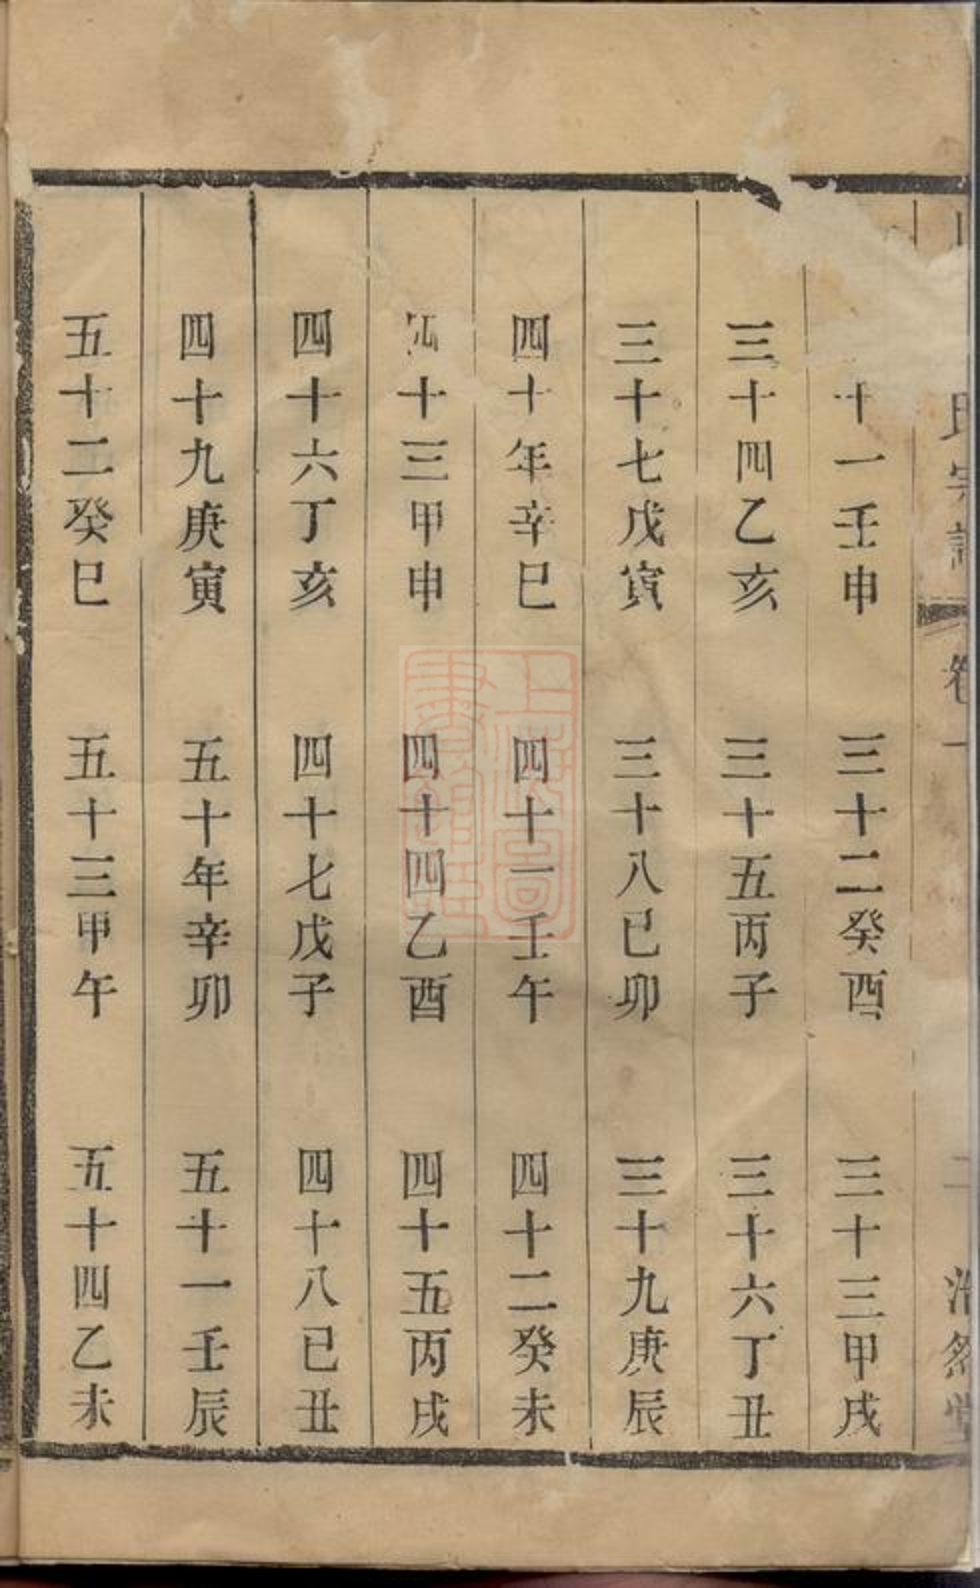 氏宗譜 卷一 二 浩然堂
十一壬申 三十二癸酉 三十三甲戌
三十四乙亥 三十五丙子 三十六丁丑
三十七戊寅 三十八已卯 三十九庚辰
四十年辛巳 四十一壬午 四十二癸未
四十三甲申 四十四乙酉 四十五丙戌
四十六丁亥 四十七戊子 四十八已丑
四十九庚寅 五十年辛卯 五十一壬辰
五十二癸巳 五十三甲午 五十四乙未